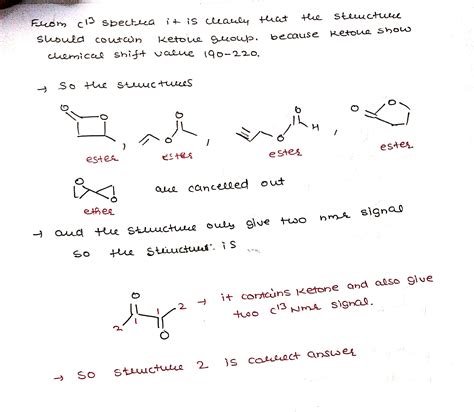 From C13 spectra it is clearly that the structure
should contain ketone group. because ketone show
chemical shift value 190-220.
→ So the structures
O O O O O
O O H O
, , ,
ester ester ester ester
O O are cancelled out
ether
→ and the structure only give two nmr signal
so the structure is
O 2 → it contains ketone and also give
1 1 two C13 Nmr signal.
2 O
→ so structure 2 is correct answer